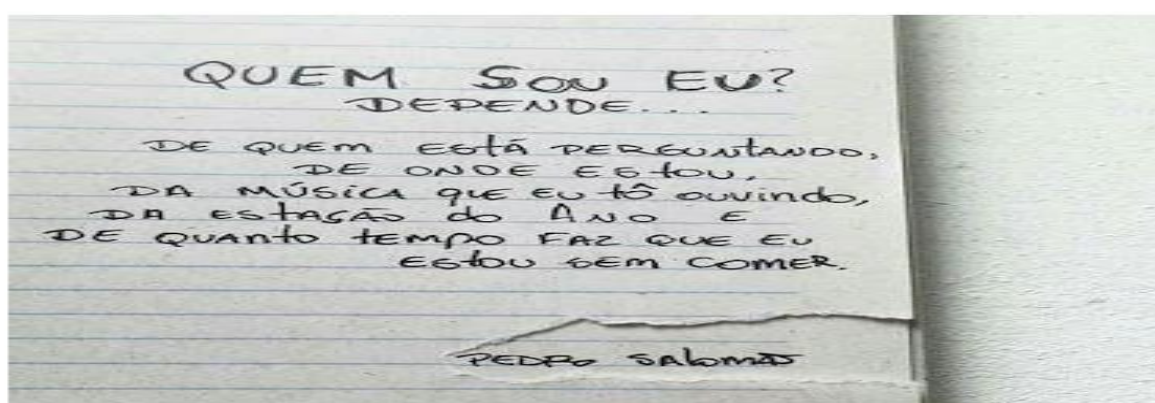 QUEM SOU EU?
DEPENDE...
DE QUEM ESTÁ PERGUNTANDO,
DE ONDE ESTOU,
DA MÚSICA QUE EU TÔ OUVINDO,
DA ESTAÇÃO DO ANO E
DE QUANTO TEMPO FAZ QUE EU
ESTOU SEM COMER.
PEDRO SALOMÃO